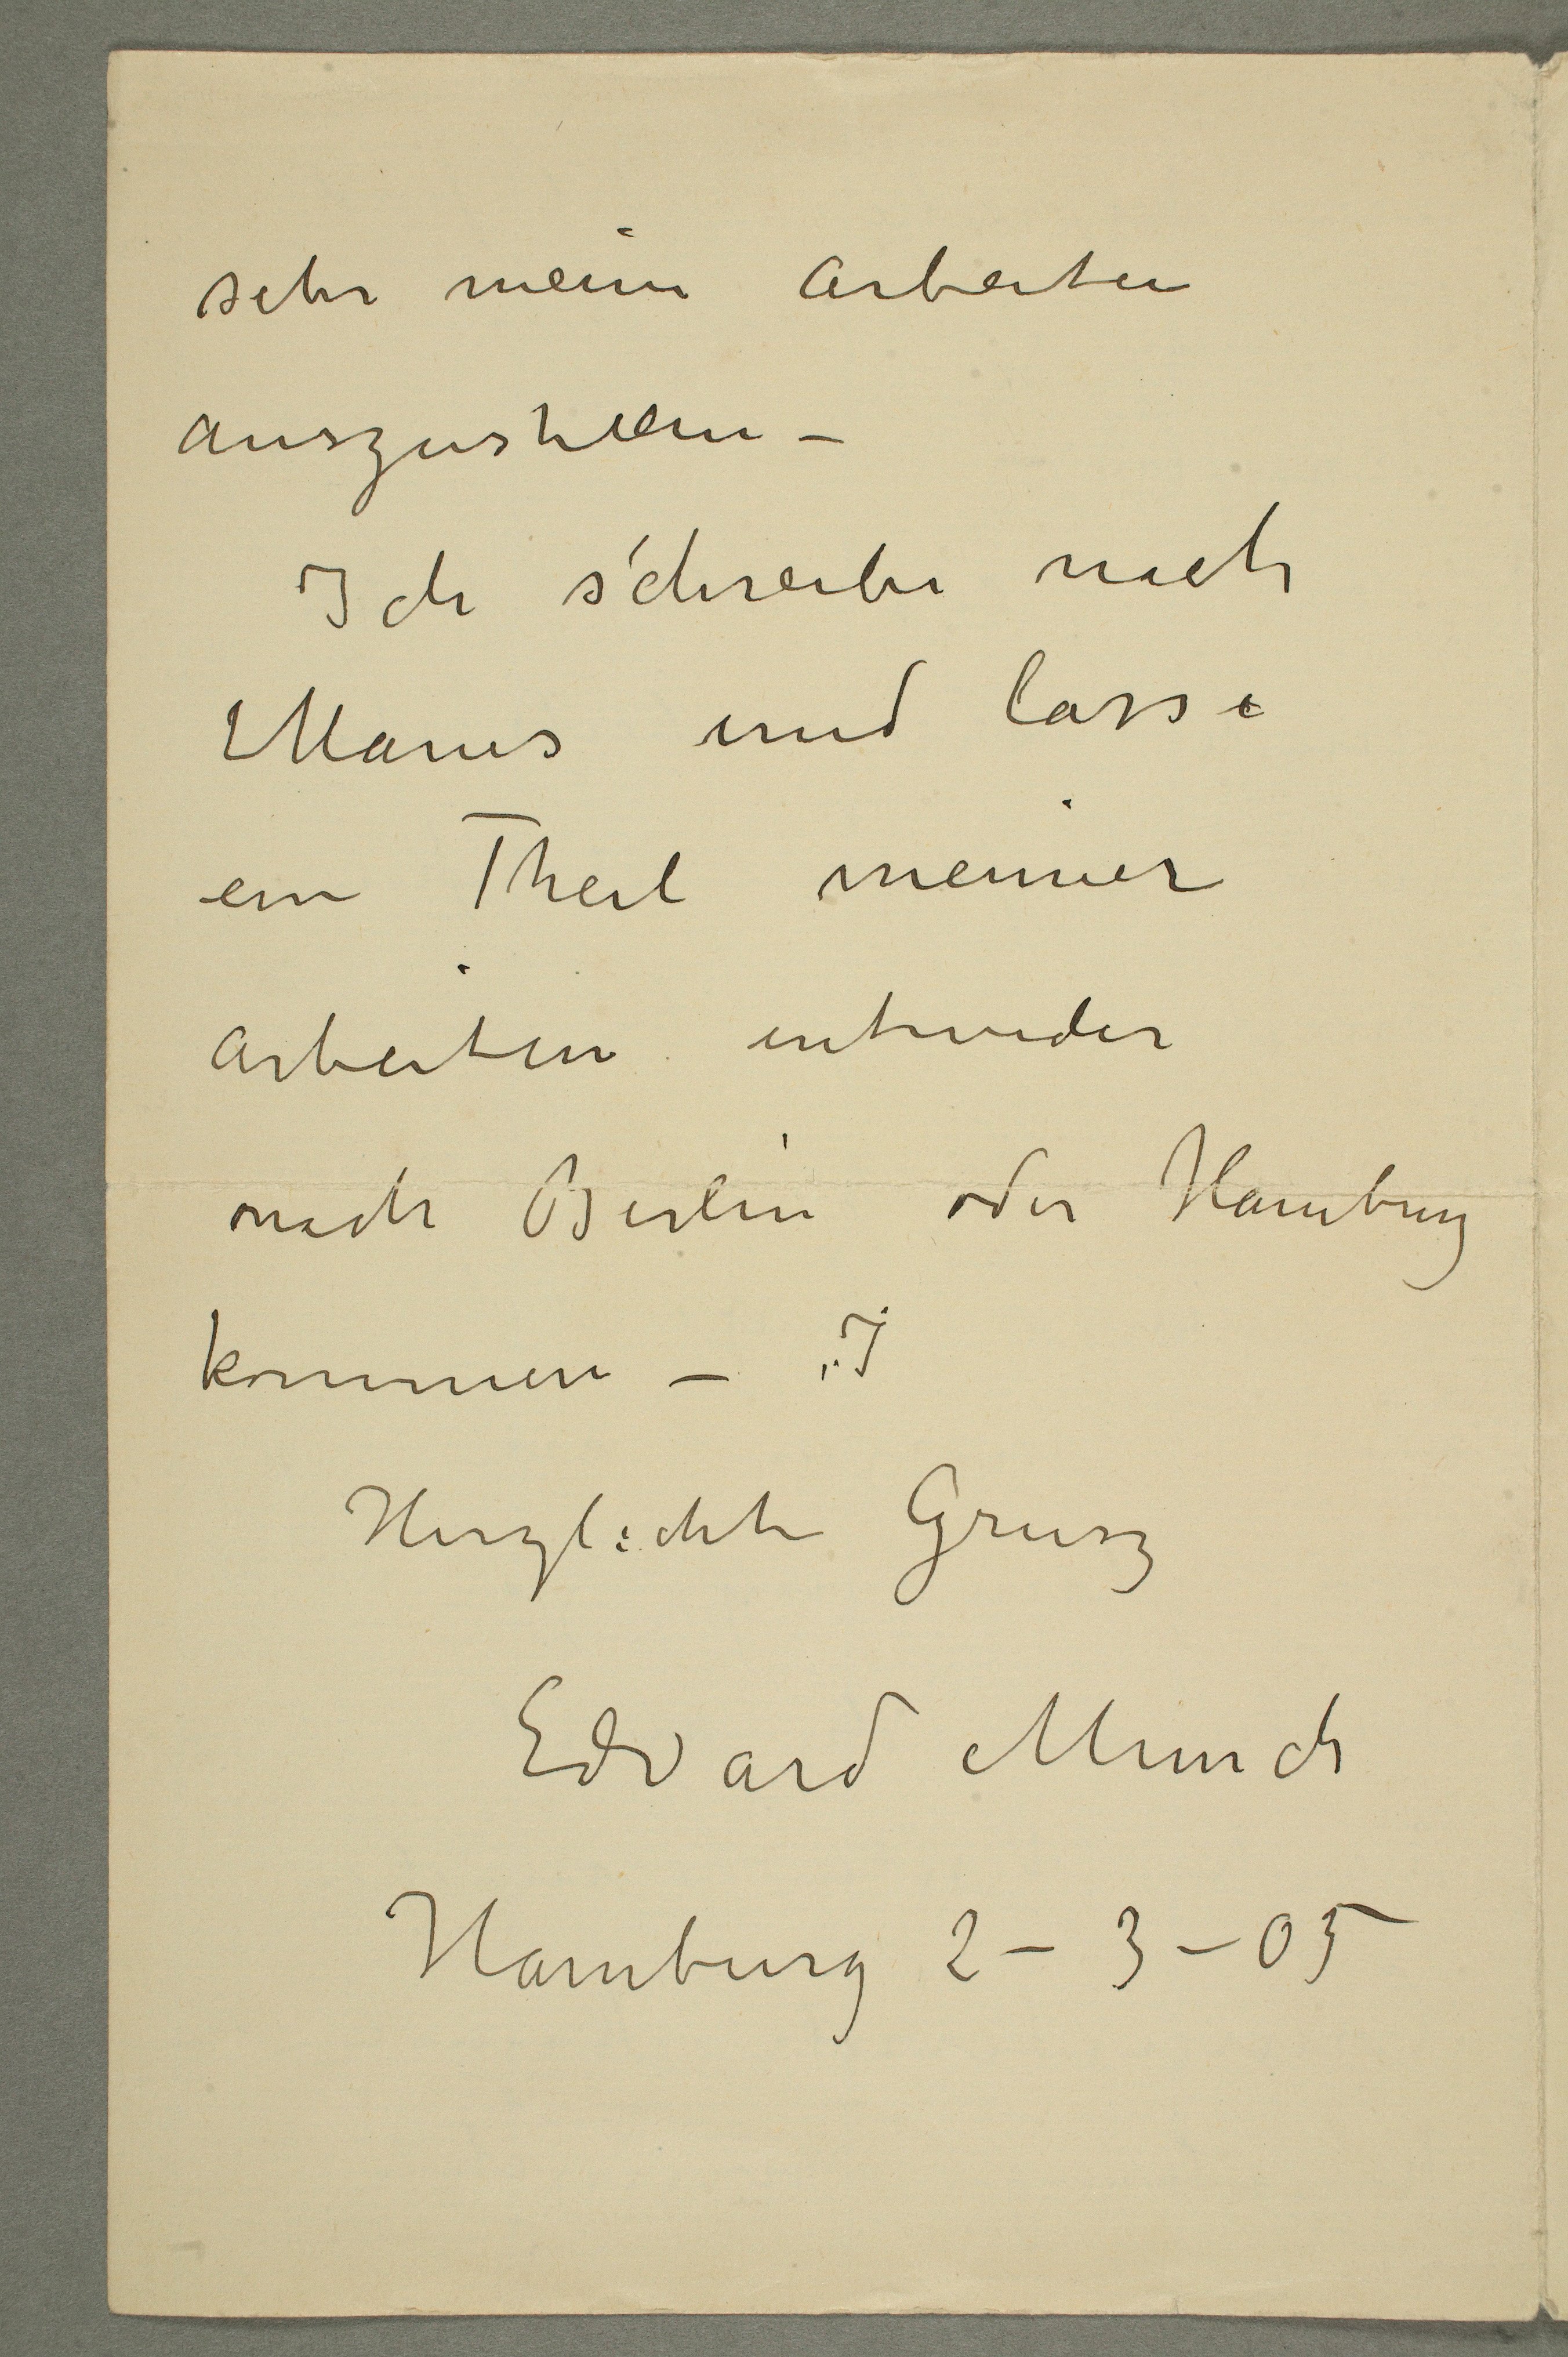 sehr meine Arbeiten
auszustellen –
Ich schreibe nach
Manes und lasse
ein Theil meiner
Arbeiten entweder
nach Berlin oder Hamburg
kommen – I
Herzlichte Grusz
Edvard Munch
Hamburg 2 – 3 – 05